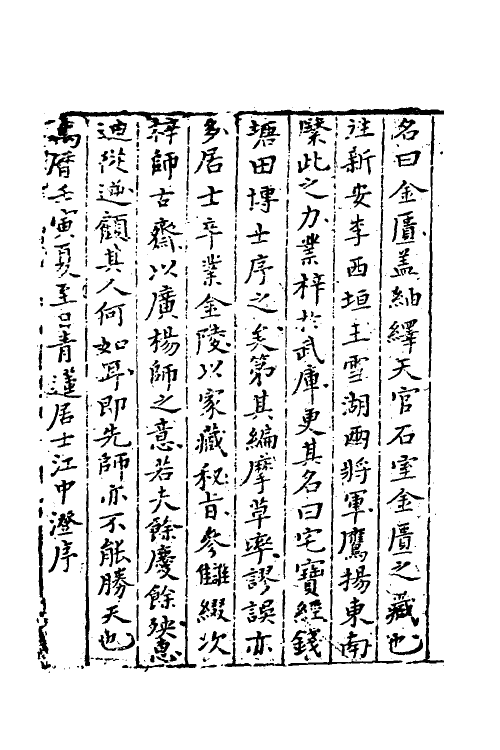 名曰金匱蓋紬繹天官石室金匱之藏也
往新安李西垣王雪湖両將軍鷹揚東南
繄此之力業梓於武庫更其名曰宅寶經錢
塘田博士序之矣第其編摩草率謬誤亦
多居士卒業金陵以家藏秘旨參讎綴次
梓師古齋以廣楊師之意若夫餘慶餘殃惠
迪從逆顧其人何如耳即先師亦不能勝天也
萬曆壬寅夏至日青蓮居士江中澄序